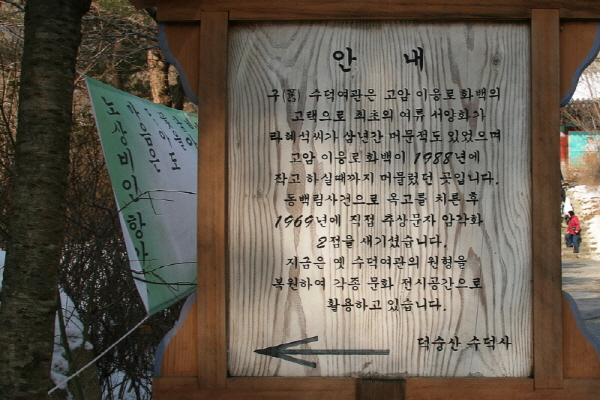 안 내
구(舊) 수덕여관은 고암 이응로 화백의
고택으로 최초의 여류 서양화가
라혜석씨가 삼년간 머문적도 있었으며
고암 이응로 화백이 1988년에
작고 하실때까지 머물렀던 곳입니다.
동백림사건으로 옥고를 치른 후
1969년에 직접 추상문자 암각화
2점을 새기셨습니다.
지금은 옛 수덕여관의 원형을
복원하여 각종 문화 전시공간으로
활용하고 있습니다.
덕숭산 수덕사
마음은